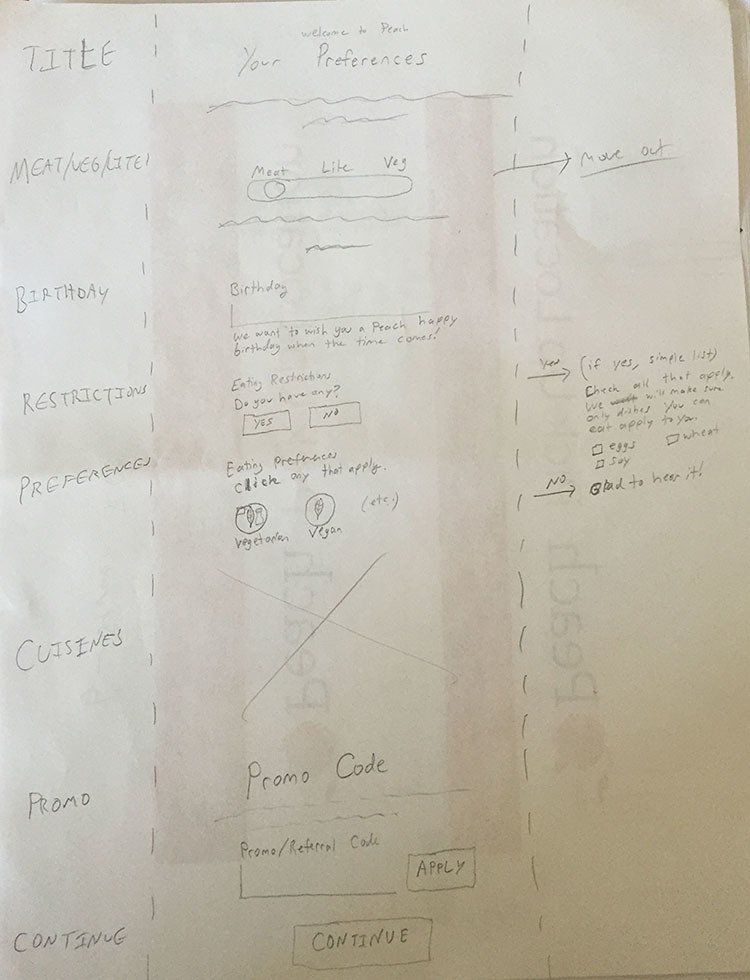 TITLE
welcome to Peach
Your Preferences
MEAT/VEG/LITE
Meat Lite Veg
Move out
BIRTHDAY
Birthday
we want to wish you a Peach happy
birthday when the time comes!
RESTRICTIONS
Eating Restrictions
Do you have any?
YES NO
Yes
(if yes, simple list)
Check all that apply.
We will make sure
only dishes you can
eat apply to you.
eggs wheat
soy
NO
Glad to hear it!
PREFERENCES
Eating Preferences
Click any that apply.
(etc.)
Vegetarian Vegan
CUISINES
PROMO
Promo Code
Promo/Referral Code
APPLY
CONTINUE
CONTINUE
Peach
Peach
Location